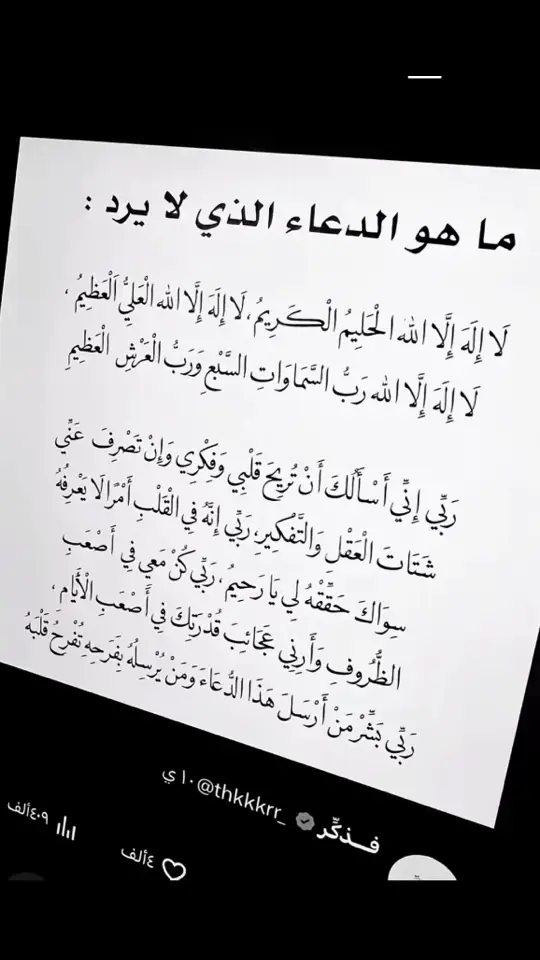 ما هو الدعاء الذي لا يرد :
لَا إِلَهَ إِلَّا الله الْحَلِيمُ الْكَرِيمُ، لَا إِلَهَ إِلَّا الله الْعَلِيُّ الْعَظِيمُ ،
لَا إِلَهَ إِلَّا الله رَبُّ السَّمَاوَاتِ السَّبْعِ وَرَبُّ الْعَرْشِ الْعَظِيمِ
رَبِّي إِنِّي أَسْأَلُكَ أَنْ تُرِيحَ قَلْبِي وَفِكْرِي وَإِنْ تَصْرِفَ عَنِّي
شَتَاتَ الْعَقْلِ وَالتَّفْكِيرِ، رَبِّي إِنَّهُ فِي الْقَلْبِ أَمْرًا لَا يَعْرِفُهُ
سِوَاكَ حَقِّقْهُ لِي يَا رَحِيمُ، رَبِّي كُنْ مَعِي فِي أَصْعَبِ
الظُّرُوفِ وَأَرِنِي عَجَائِبَ قُدْرَتِكَ فِي أَصْعَبِ الْأَيَّامِ ،
رَبِّي بَشِّرْ مَنْ أَرْسَلَ هَذَا الدُّعَاءَ وَمَنْ يُرْسِلُهُ بِفَرَحِهِ تُفْرِحُ قَلْبَهُ
فــذكِّر @thkkkrr_ ١٠ ي
٤ألف ٤٠٩ألف